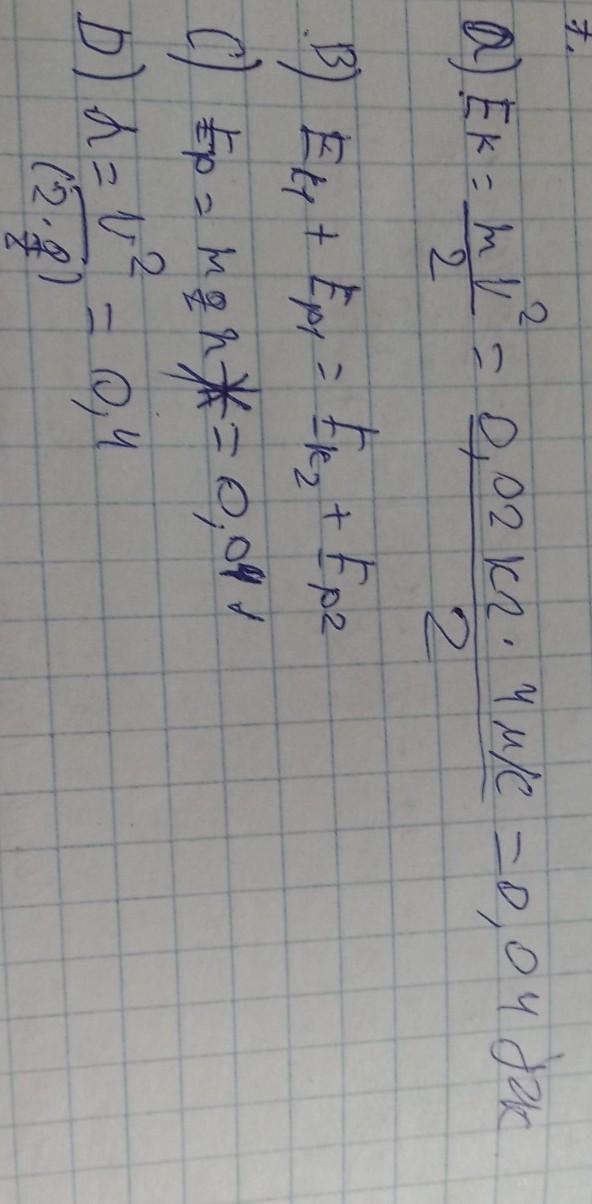 7.
a) Eк = mV²/2 = 0,02 кг · 4 м/с / 2 = 0,04 Дж
B) Eк₁ + Eр₁ = Eк₂ + Eр₂
C) Eр = mgh = 0,04
D) h = V²/(2·g) = 0,4